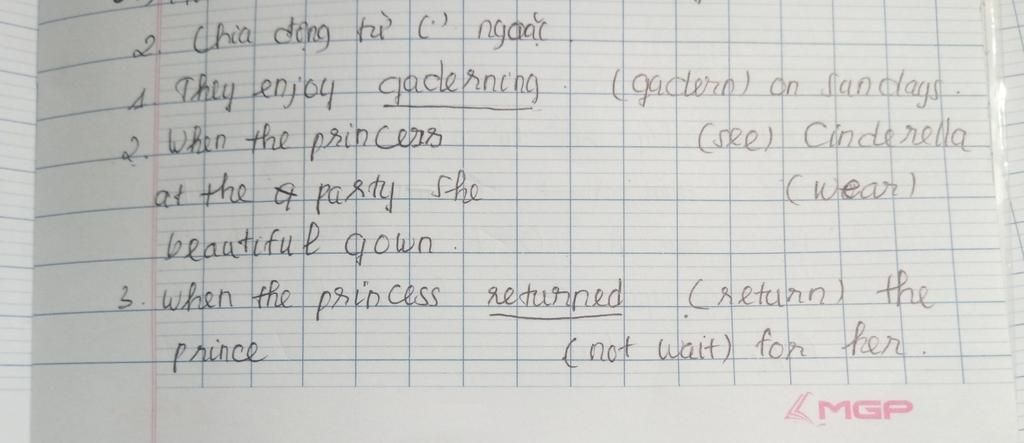 2. Chia động từ (.) ngoặc
1. They enjoy gaderning. (gadern) on Sandays.
2. When the princess (see) Cinderella
at the party she (wear)
beautiful gown.
3. when the princess returned (return) the
prince (not wait) for her.
MGP